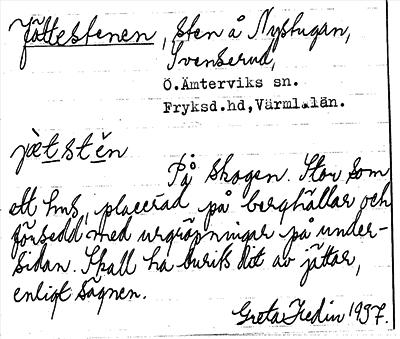 Jättestenen, sten å Nystugan,
Svenserud,
Ö.Ämterviks sn.
Fryksd.hd,Värml.län.
jètstén
På skogen. Stor som
ett hus, placerad på berghällar och
försedd med urgröpningar på under-
sidan. Skall ha burits dit av jättar,
enligt sägnen.
Greta Hedin 1937.